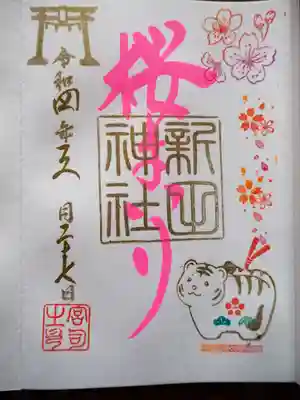 桜まつり
新山神社
令和四年三月二十七日
宮司